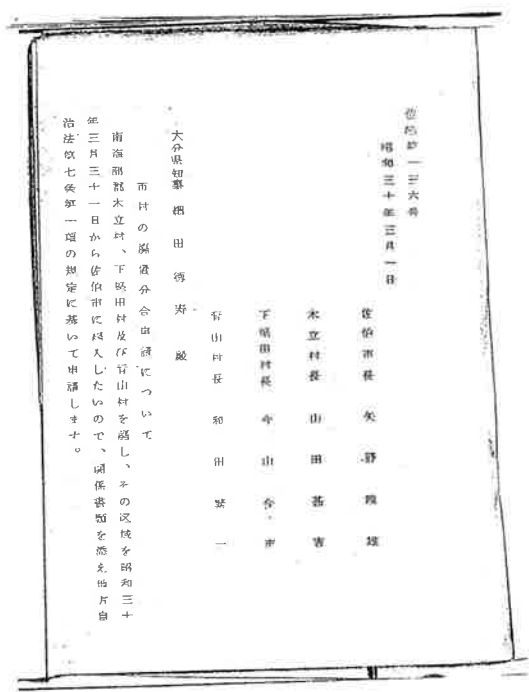 佐総第一三六号
昭和三十年三月一日
佐伯市長 矢野
木立村長 山田甚吉
下堅田村長 今山
青山村長 和田繁一
大分県知事 細田徳寿殿
市村の廃置分合申請について
南海部郡木立村、下堅田村及び青山村を廃し、その区域を昭和三十
年三月三十一日から佐伯市に編入したいので、関係書類を添え地方自
治法第七条第一項の規定に基いて申請します。